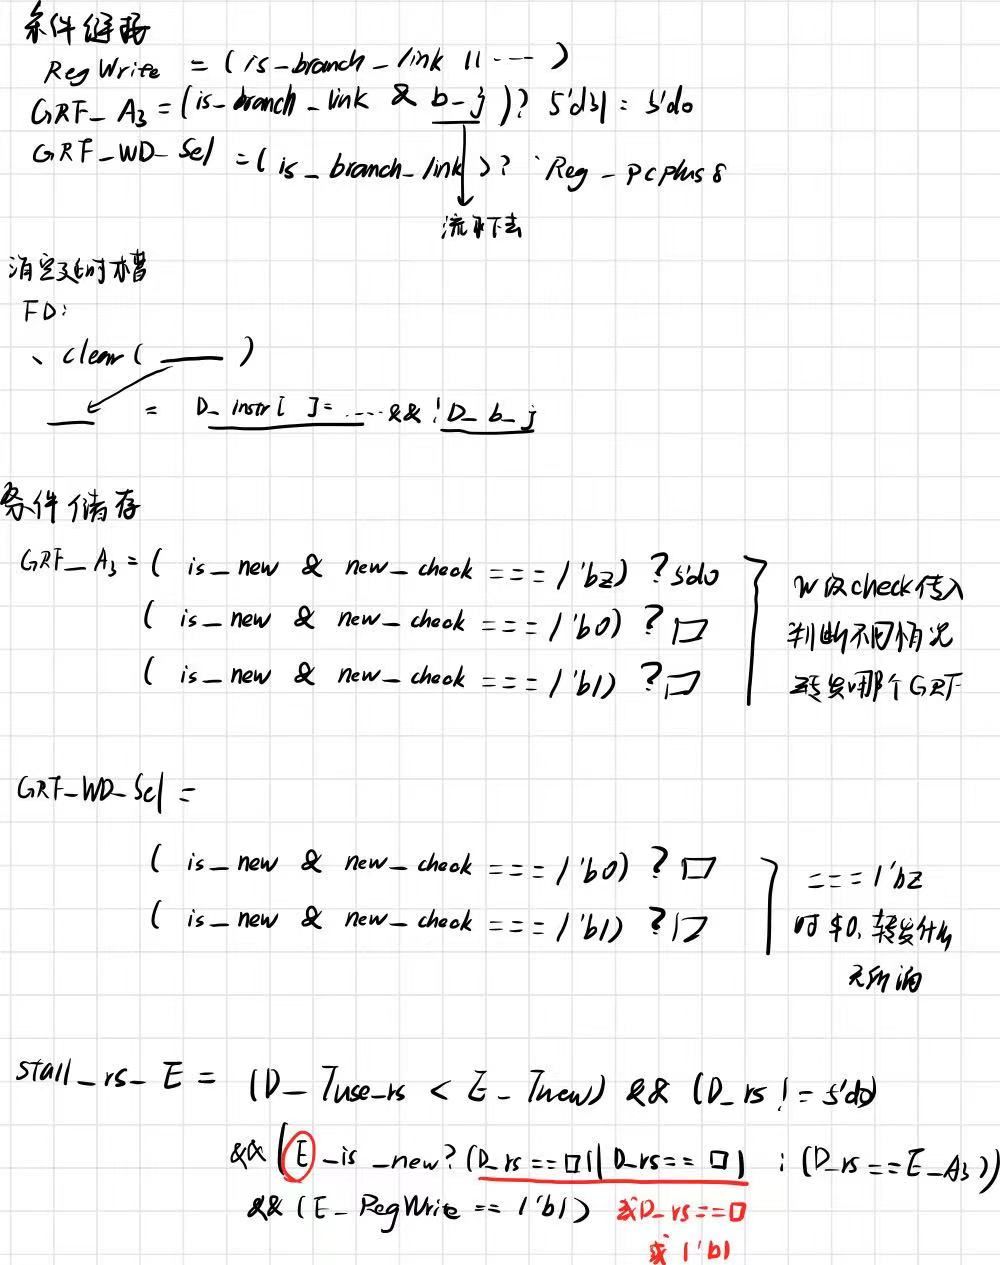 条件链接
RegWrite = (is_branch_link || ····)
GRF_A3 = (is_branch_link & b_j)? 5'd31 : 5'd0
GRF_WD_Sel = (is_branch_link)? `Reg_pcplus8
流水下去
清空延时槽
FD:
、clear( ____ )
____ = D_instr[ ]= ....&& !D_b_j
条件储存
GRF_A3 = ( is_new & new_check === 1'bz) ? 5'd0
( is_new & new_check === 1'b0) ? □
( is_new & new_check === 1'b1) ? □
W级check传入
判断不同情况
转发哪个GRF
GRF_WD_Sel =
( is_new & new_check === 1'b0) ? □
( is_new & new_check === 1'b1) ? □
=== 1'bz
时$0,转发什么
无所谓
stall_rs_E = (D_Tuse_rs < E_Tnew) && (D_rs != 5'd0)
&& (E_is_new? (D_rs == □ || D_rs == □) : (D_rs == E_A3))
&& (E_RegWrite == 1'b1) 或D_rs==□
或 1'b1